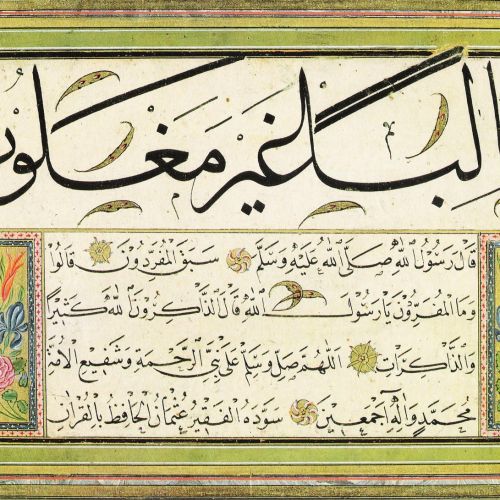 البا غير مغلو
قَالَ رَسُولُ اللهِ صَلَّى اللهُ عَلَيْهِ وَسَلَّمَ سَبَقَ الْمُفَرِّدُونَ قَالُوا
وَمَا الْمُفَرِّدُونَ يَا رَسُولَ اللهِ قَالَ الذَّاكِرُونَ اللهَ كَثِيرًا
وَالذَّاكِرَاتِ اللّٰهُمَّ صَلِّ وَسَلِّمْ عَلَى نَبِيِّ الرَّحْمَةِ وَشَفِيعِ الْأُمَّةِ
مُحَمَّدٍ وَآلِهِ أَجْمَعِينَ سَوَّدَهُ الْفَقِيرُ عُثْمَانُ الْحَافِظُ بِالْقُرْآنِ